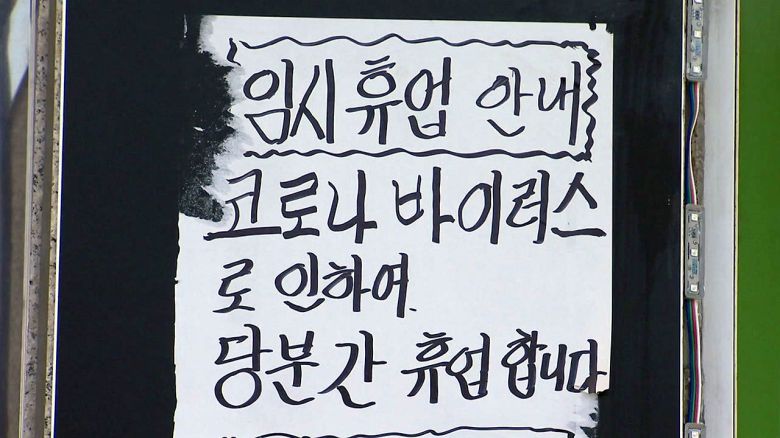 임시 휴업 안내
코로나 바이러스
로 인하여.
당분간 휴업 합니다